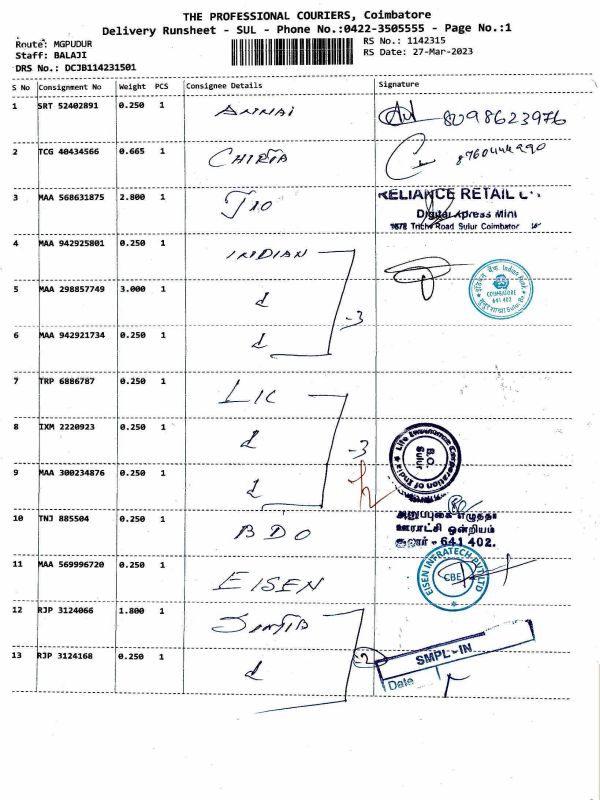 THE PROFESSIONAL COURIERS, Coimbatore
Delivery Runsheet - SUL - Phone No.:0422-3505555 - Page No.:1
Route: MGPUDUR
Staff: BALAJI
DRS No.: DCJB114231501
RS No.: 1142315
RS Date: 27-Mar-2023
S No Consignment No Weight PCS Consignee Details Signature
1 SRT 52402891 0.250 1 ANNAI 8098623976
2 TCG 40434566 0.665 1
3 MAA 568631875 2.800 1 JIO
RELIANCE RETAIL
Digital Xpress Mini
1678 Trichy Road Sulur Coimbatore
4 MAA 942925801 0.250 1 INDIAN
5 MAA 298857749 3.000 1 d -3
Indian Bank
COIMBATORE
641 402
6 MAA 942921734 0.250 1 d
7 TRP 6886787 0.250 1 LIC
8 IXM 2220923 0.250 1 d -3
Life Insurance Corporation of India
B.O.
Sulur
9 MAA 300234876 0.250 1 d
10 TNJ 885504 0.250 1 BDO
ஊராட்சி ஒன்றியம்
சூலூர் - 641 402.
11 MAA 569996720 0.250 1 EISEN
EISEN INFRATECH PVT LTD
CBE
12 RJP 3124066 1.800 1
13 RJP 3124168 0.250 1 d -2
SMPL-IN
Date